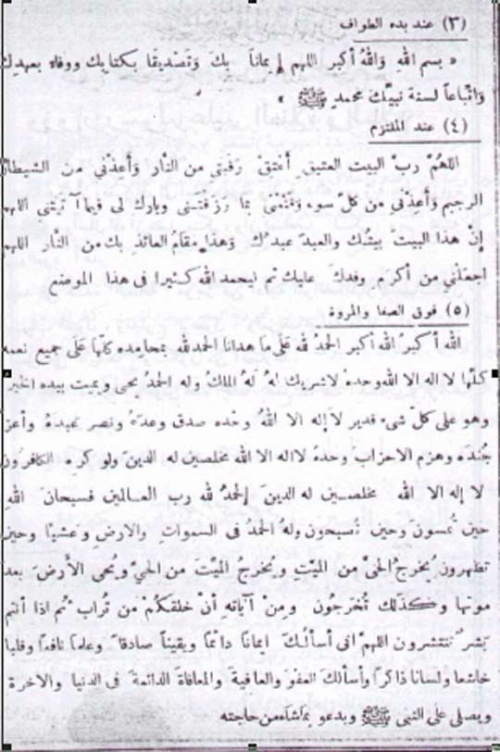 (٣) عند بدء الطواف
« بسم الله وَاللهُ أكبر اللهم إيماناً بكَ وَتَصْديقًا بكتابِك ووفاء بعهدك
وَاتِّباعاً لسنة نبيِّك محمدٍ ﷺ »
(٤) عند الملتزم
اللهُمَّ ربَّ البيت العتيق أَعْتِقْ رَقبتى من النَّار وَأَعِذْنى من الشيطان
الرجيم وَأَعذْنى من كلّ سوء وَقَنِّعْنى بما رَزَقتنى وبارك لى فيما آتيتَنى اللهم
إنَّ هذا البيتَ بيتُك والعبدَ عبدُك وَهَذا مَقامُ العائذ بك من النَّار اللهم
اجعلنى من أكرم وفدِكَ عليك ثم ليحمد الله كثيرا فى هذا الموضع
(٥) فوق الصفا والمروة
الله أكبرُ الله أكبر الحمدُ لله عَلَى مَا هدانا الحمد لله بمحامده كلها عَلَى جميع نعمه
كلّها لا اله الا الله وحدهُ لا شريك لهُ لَهُ الملكُ وله الحمدُ يحيى ويميت بيده الخير
وهو على كلّ شىءٍ قدير لا إله الا اللهُ وحْده صدق وعدَهُ ونصر عبدَهُ وأعز
جُنْدَه وهزم الاحزاب وحدهُ لا اله الا الله مخلصين له الدينَ ولو كره الكافرون
لا إله الا الله مخلصين له الدينَ الحمدُ لله رب العالمين فسبحانَ اللهِ
حينَ تُمسونَ وحينَ تُصبحون ولهُ الحمدُ فى السموات والارضِ وعشيًا وحين
تظهرون يخرجُ الحىَّ من الميِّتِ ويُخرجُ الميِّتَ من الحىِّ ويُحيى الأرضَ بعد
موتها وكذلك تُخرَجُون ومِنْ آيَاتِهِ أنْ خلقكُمْ من تُرابٍ ثم اذا أنتم
بشرٌ تنتشرون اللهمَّ انى أسألُكَ ايمانًا دائمًا ويقينًا صادقًا وعلمًا نافعًا وقلبا
خاشعا ولسانا ذاكرًا وأسألكَ العفوَ والعافيةَ والمعافاةَ الدائمةَ فى الدنيا والاخرة
ويصلى على النبى ﷺ ويدعو بما شاء من حاجته